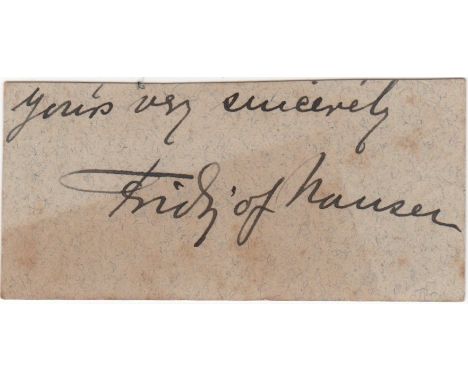 yours very sincerely
Fridtjof Nansen